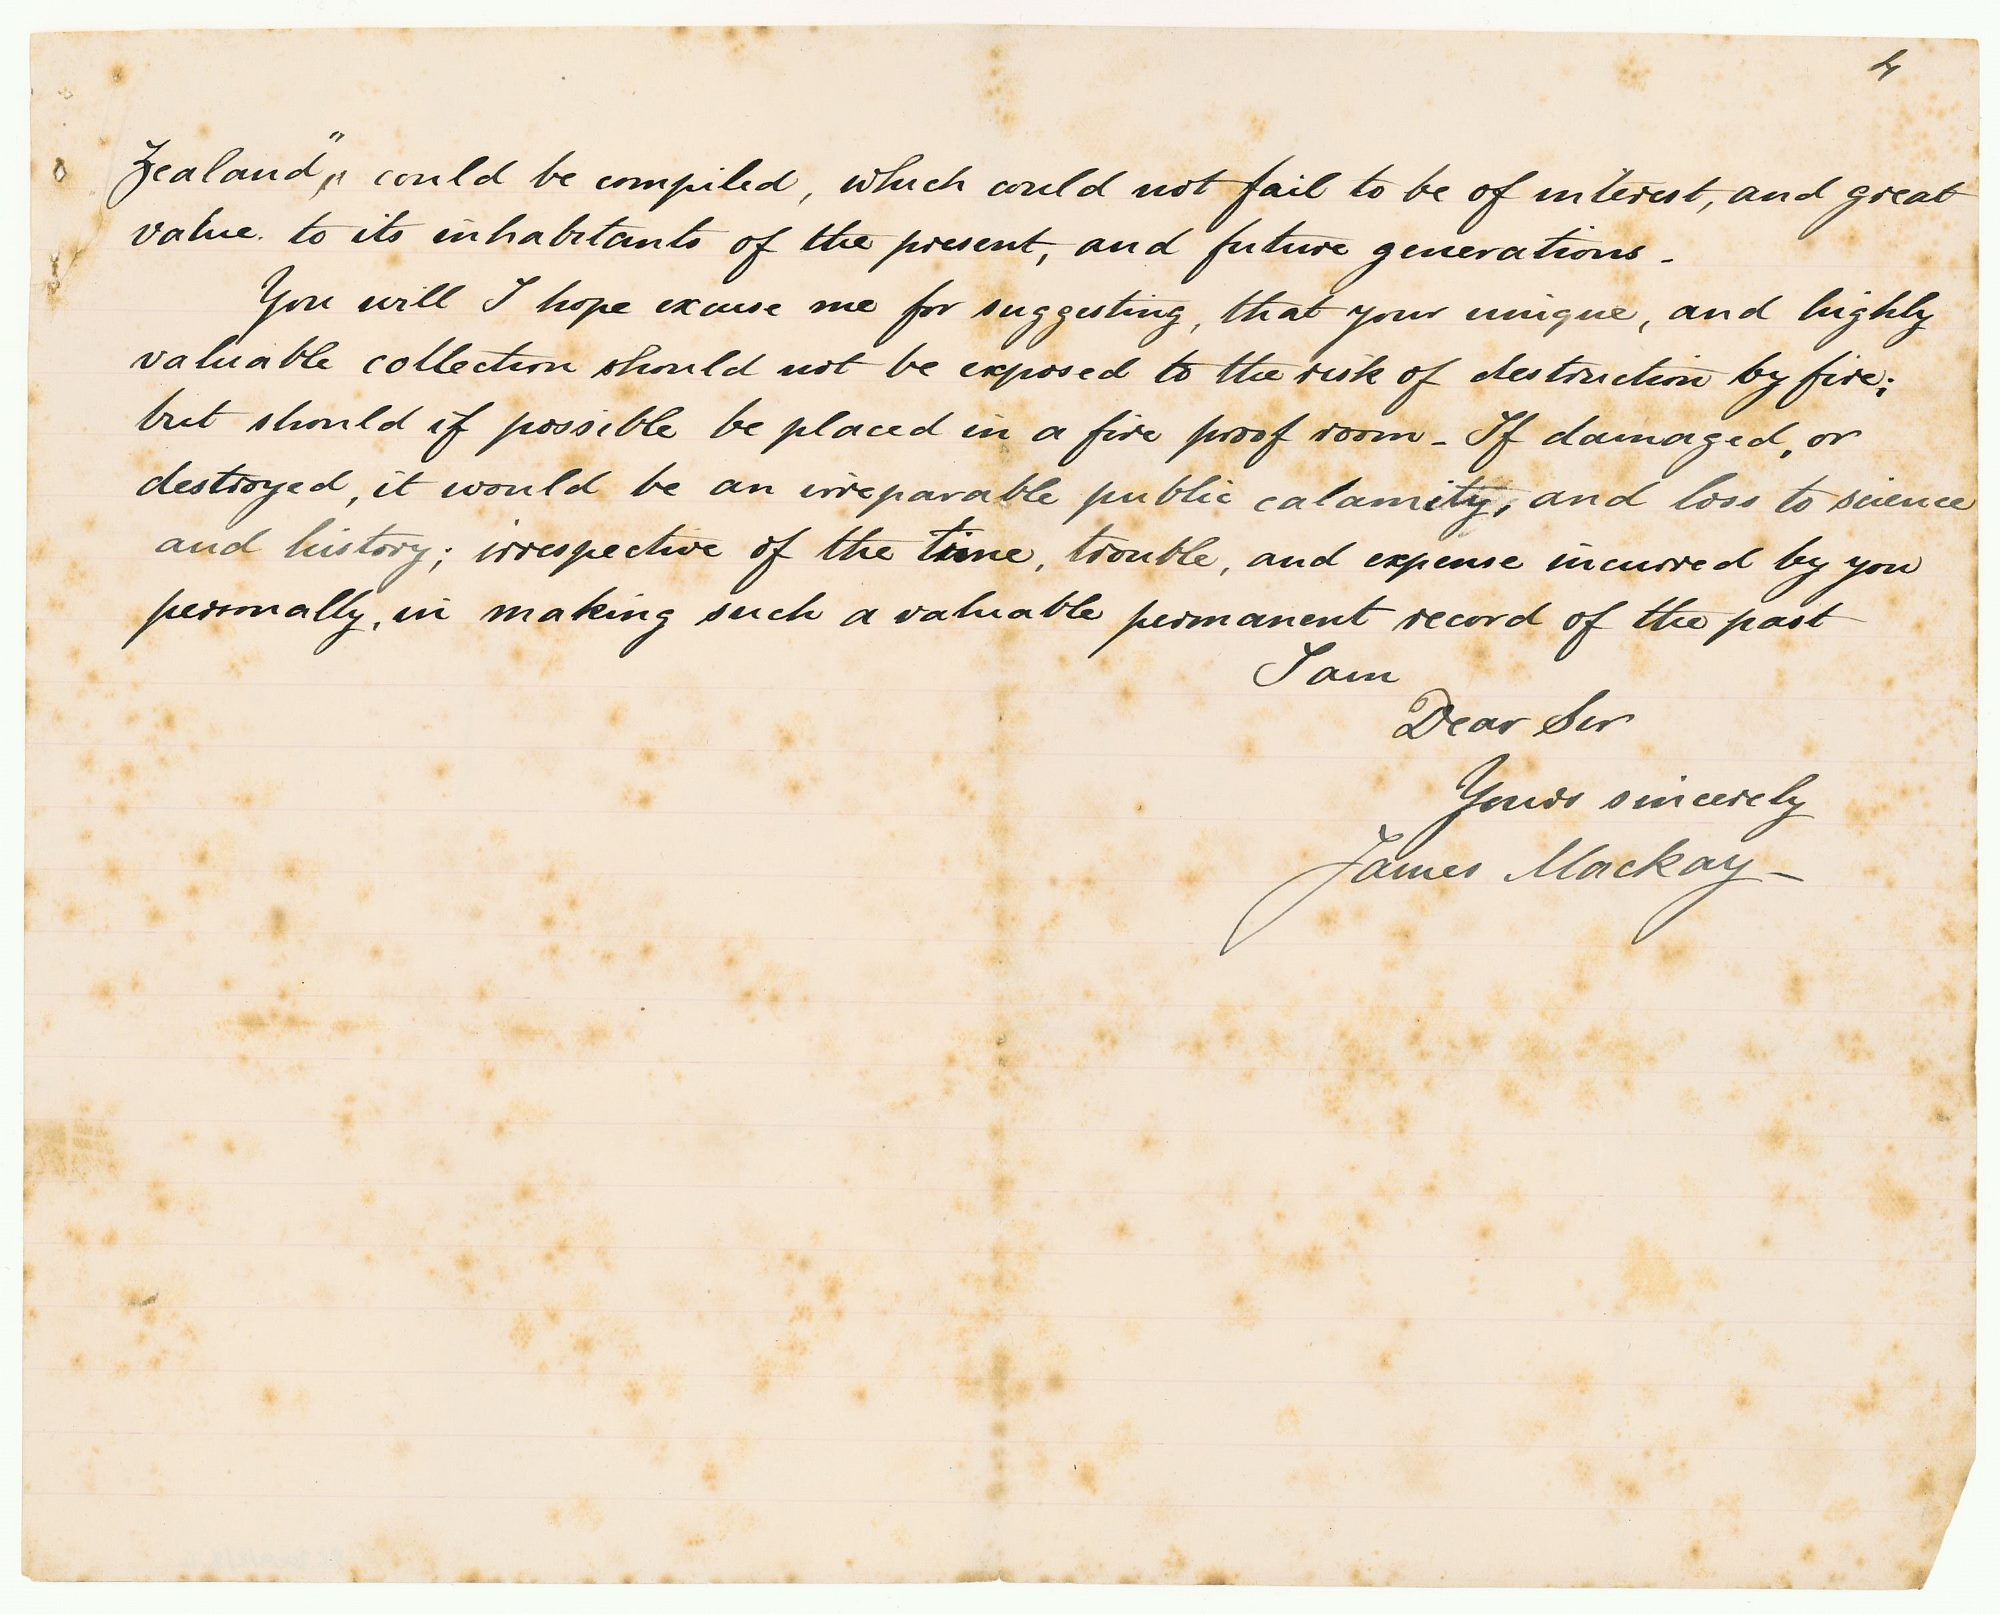 4
Zealand", could be compiled, which could not fail to be of interest, and great
value. to its inhabitants of the present, and future generations.
You will I hope excuse me for suggesting, that your unique, and highly
valuable collection should not be exposed to the risk of destruction by fire;
but should if possible be placed in a fire proof room - If damaged, or
destroyed, it would be an irreparable public calamity, and loss to science
and history; irrespective of the time, trouble, and expense incurred by you
personally, in making such a valuable permanent record of the past
I am
Dear Sir
Yours sincerely
James Mackay -